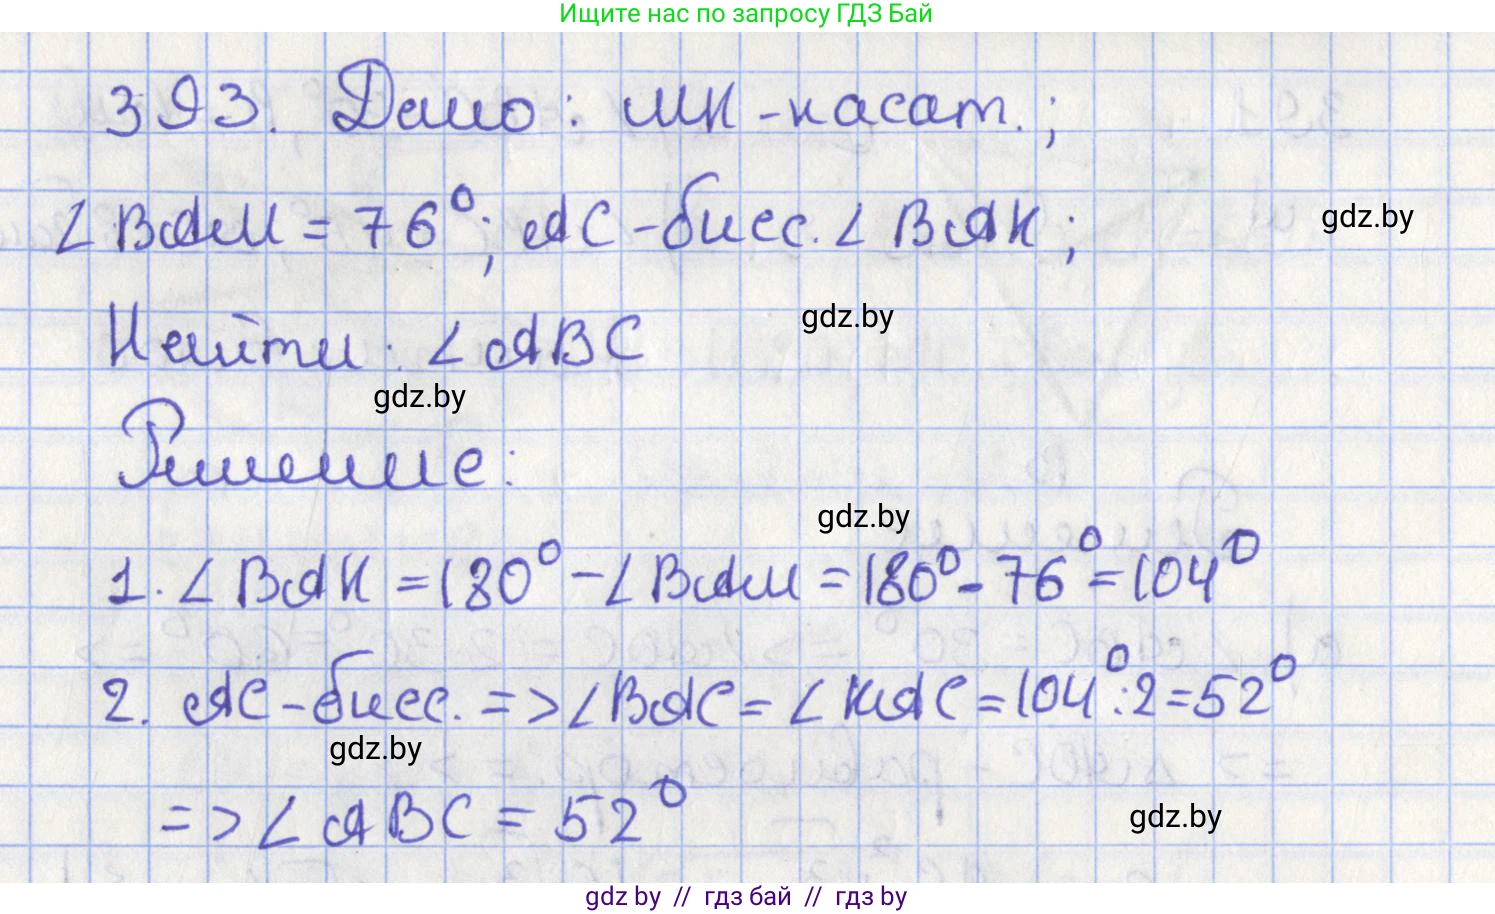 Ищите нас по запросу ГДЗ Бай
393. Дано: MK - касат.;
∠BAM = 76°; AC - бисс. ∠BAK;
gdz.by
Найти: ∠ABC
gdz.by
gdz.by
Решение:
gdz.by
1. ∠BAK = 180° - ∠BAM = 180° - 76° = 104°
2. AC - бисс. => ∠BAC = ∠KAC = 104° : 2 = 52°
gdz.by
=> ∠ABC = 52°
gdz.by
gdz.by // гдз бай // гдз by